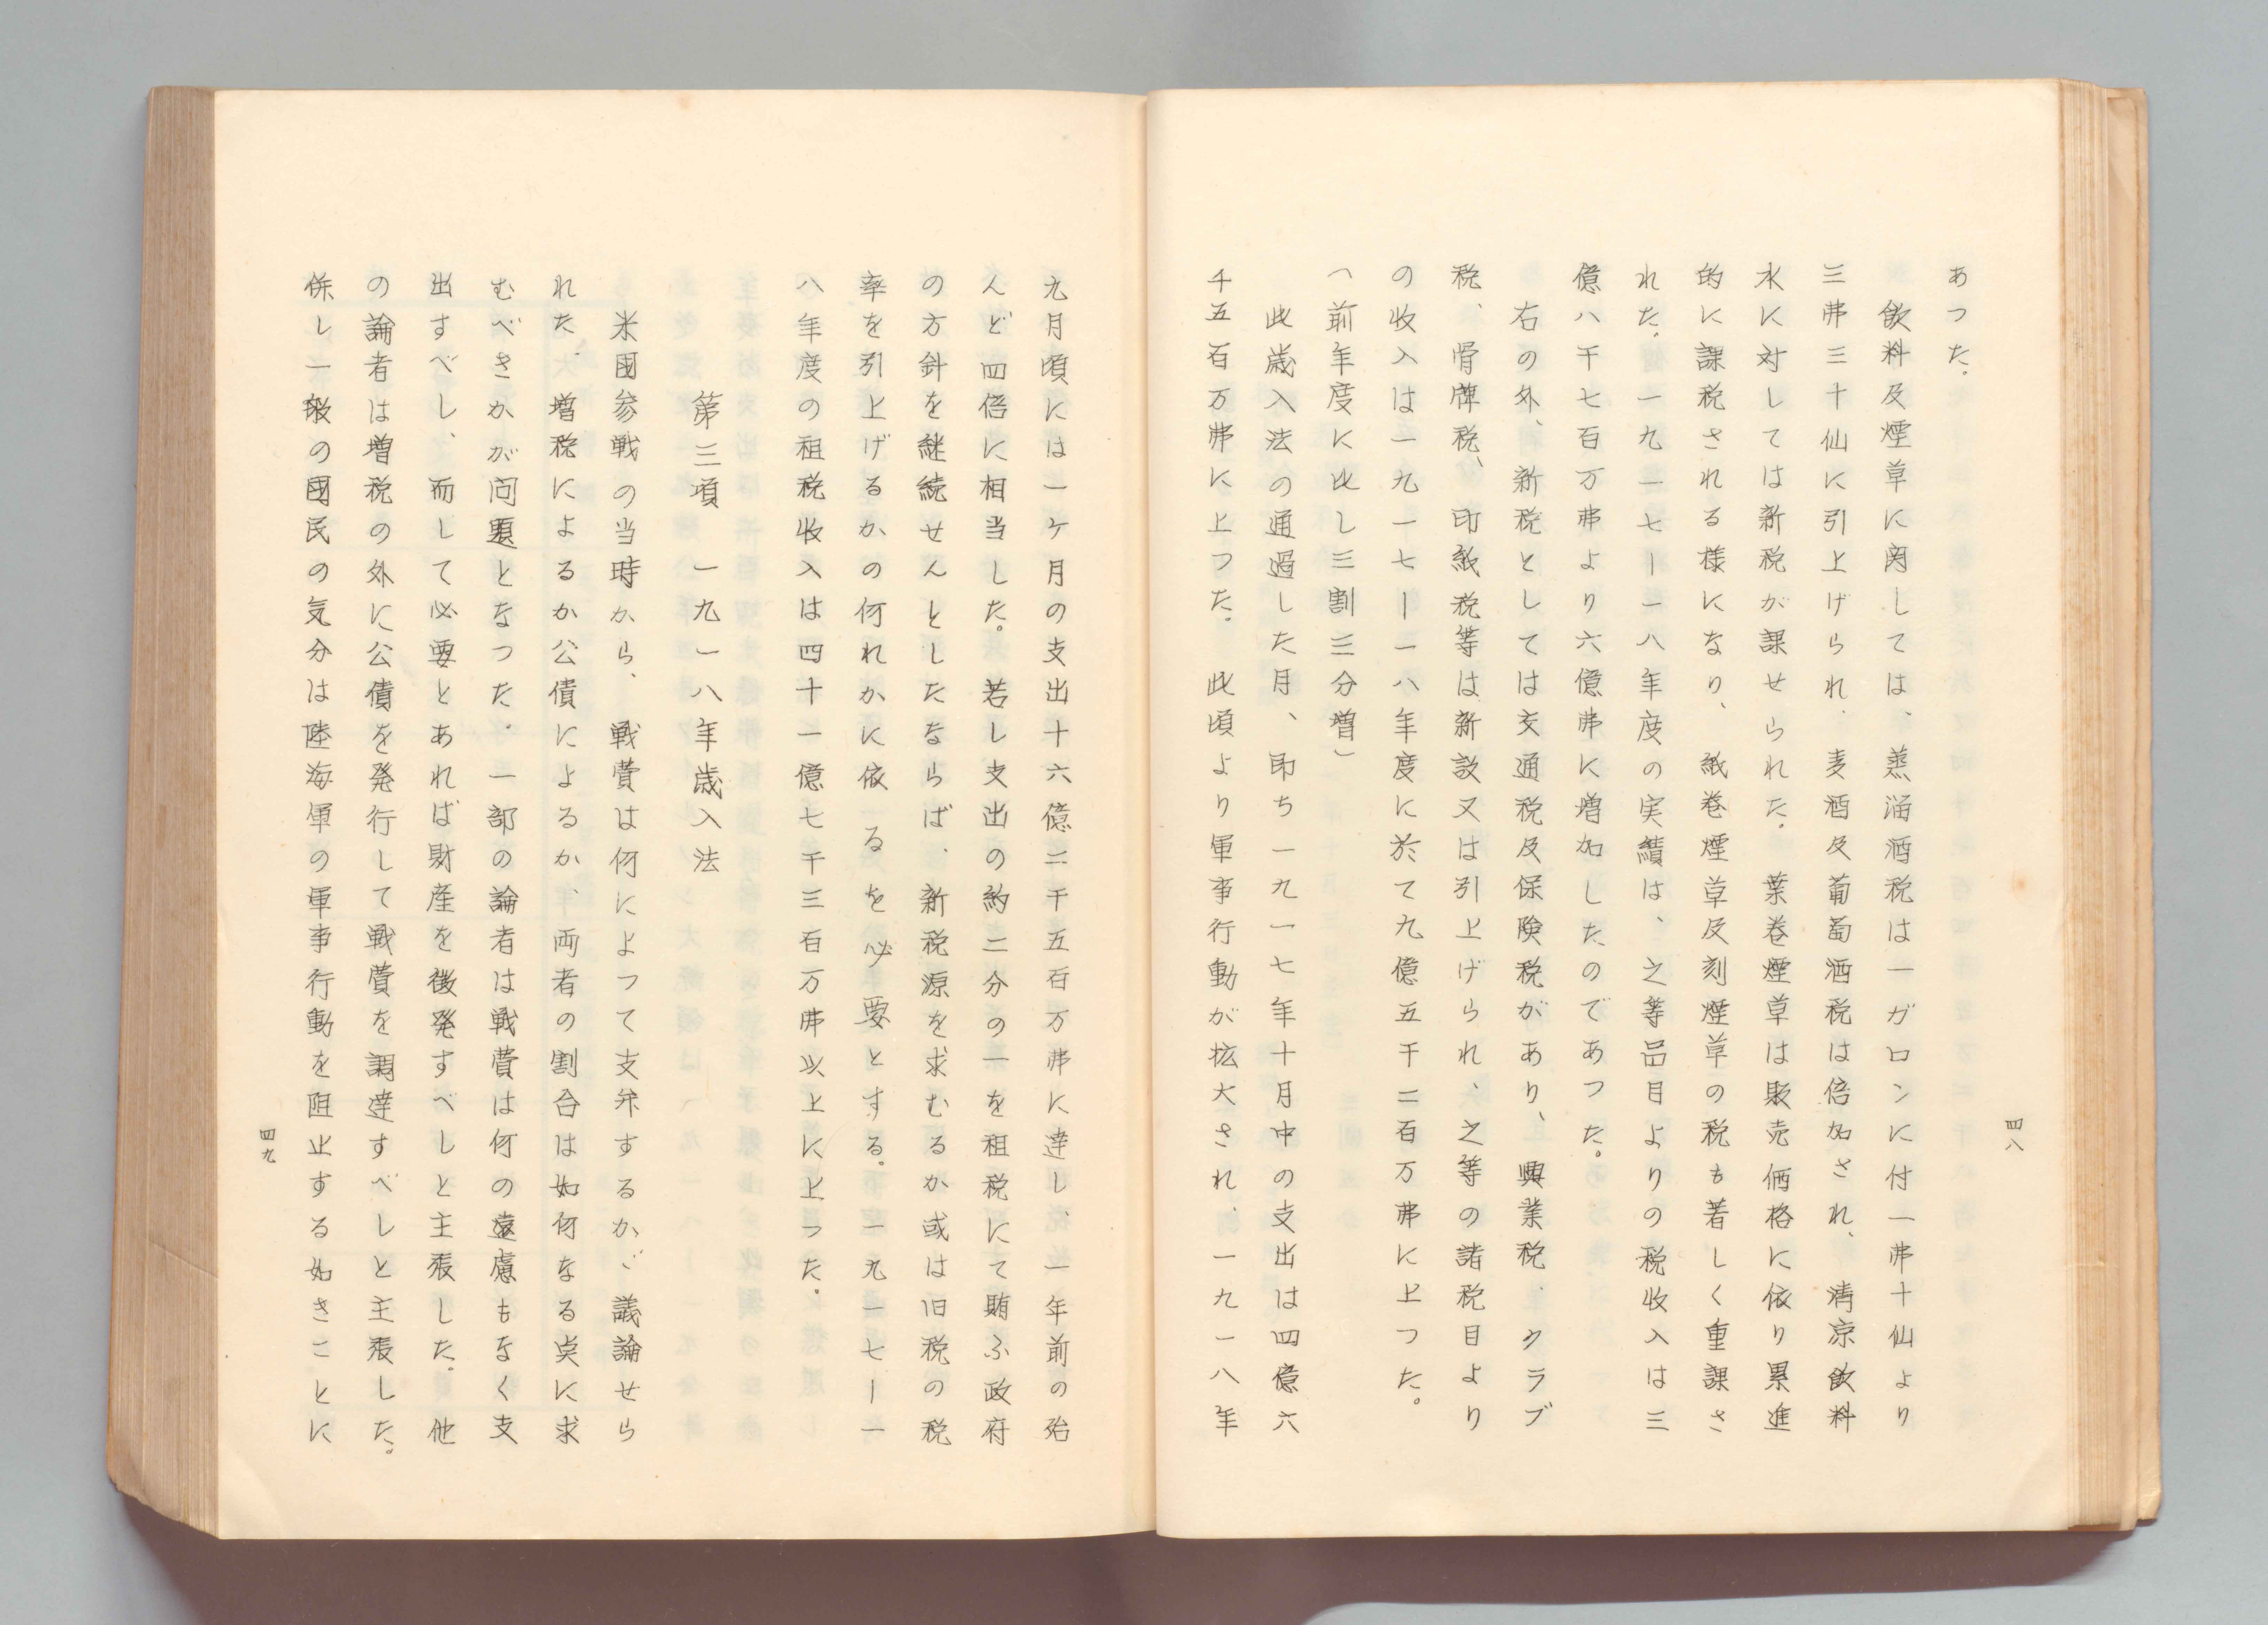 あつた。
飲料及煙草に関しては、蒸溜酒税は一ガロンに付一弗十仙より
三弗三十仙に引上げられ、麦酒及葡萄酒税は倍加され、清凉飲料
水に対しては新税が課せられた。葉巻煙草は販売価格に依り累進
的に課税される様になり、紙巻煙草及刻煙草の税も著しく重課さ
れた。一九一七ー一八年度の実績は、之等品目よりの税収入は三
億八千七百万弗より六億弗に増加したのであつた。
右の外、新税としては交通税及保険税があり、興業税、クラブ
税、骨牌税、印紙税等は新設又は引上げられ、之等の諸税目より
の收入は一九一七ー一八年度に於て九億五千二百万弗に上つた。
（前年度に比し三割三分増）
此歳入法の通過した月、即ち一九一七年十月中の支出は四億六
千五百万弗に上つた。此頃より軍事行動が拡大され、一九一八年
四八
九月頃には一ケ月の支出十六億二千五百万弗に達し、一年前の殆
んど四倍に相当した。若し支出の約二分の一を租税にて賄ふ政府
の方針を継続せんとしたならば、新税源を求むるか或は旧税の税
率を引上げるかの何れかに依るを必要とする。一九一七ー一
八年度の租税收入は四十一億七千三百万弗以上に上つた。
第三項　一九一八年歳入法
米國参戦の当時から、戦費は何によつて支弁するかゞ議論せら
れた。増税によるか公債によるか、両者の割合は如何なる点に求
むべきかが问題となつた。一部の論者は戦費は何の遠慮もなく支
出すべし、而して必要とあれば財産を徴発すべしと主張した。他
の論者は増税の外に公債を発行して戦費を調達すべしと主張した。
併し一般の國民の気分は陸海軍の軍事行動を阻止する如きことに
四九